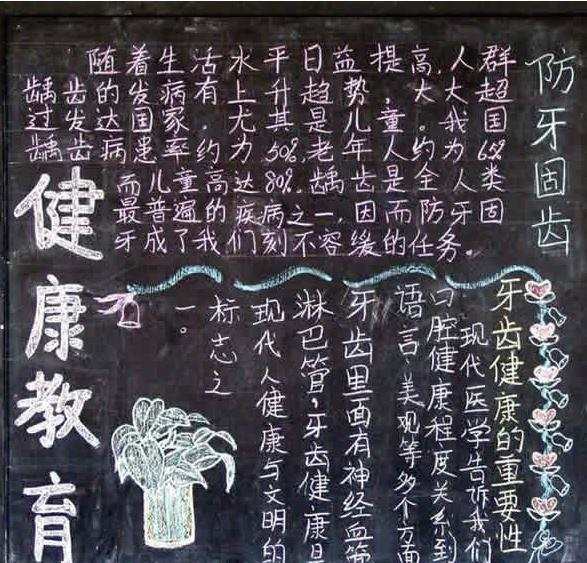 防牙固齿
随着生活水平日益提高,人群
龋齿的发病有上升趋势,大大超
过发达国家.尤其是儿童。我国
龋齿病患率约为50%,老年人约为65%
而儿童高达80%.龋齿是全人类
最普遍的疾病之一,因而防牙固
牙成了我们刻不容缓的任务。
健康教育
牙齿健康的重要性
现代医学告诉我们
口腔健康程度关系到
语言、美观等多个方面
牙齿里面有神经血管
淋巴管,牙齿健康是
现代人健康与文明的
标志之
一。